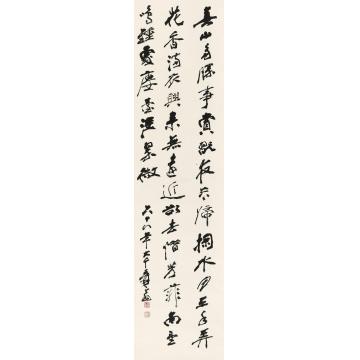 春山多勝事賞翫夜忘歸掬水月在手弄
花香滿衣興來無遠近欲去惜芳菲南望
鳴鐘處樓臺深翠微
六十八年大千